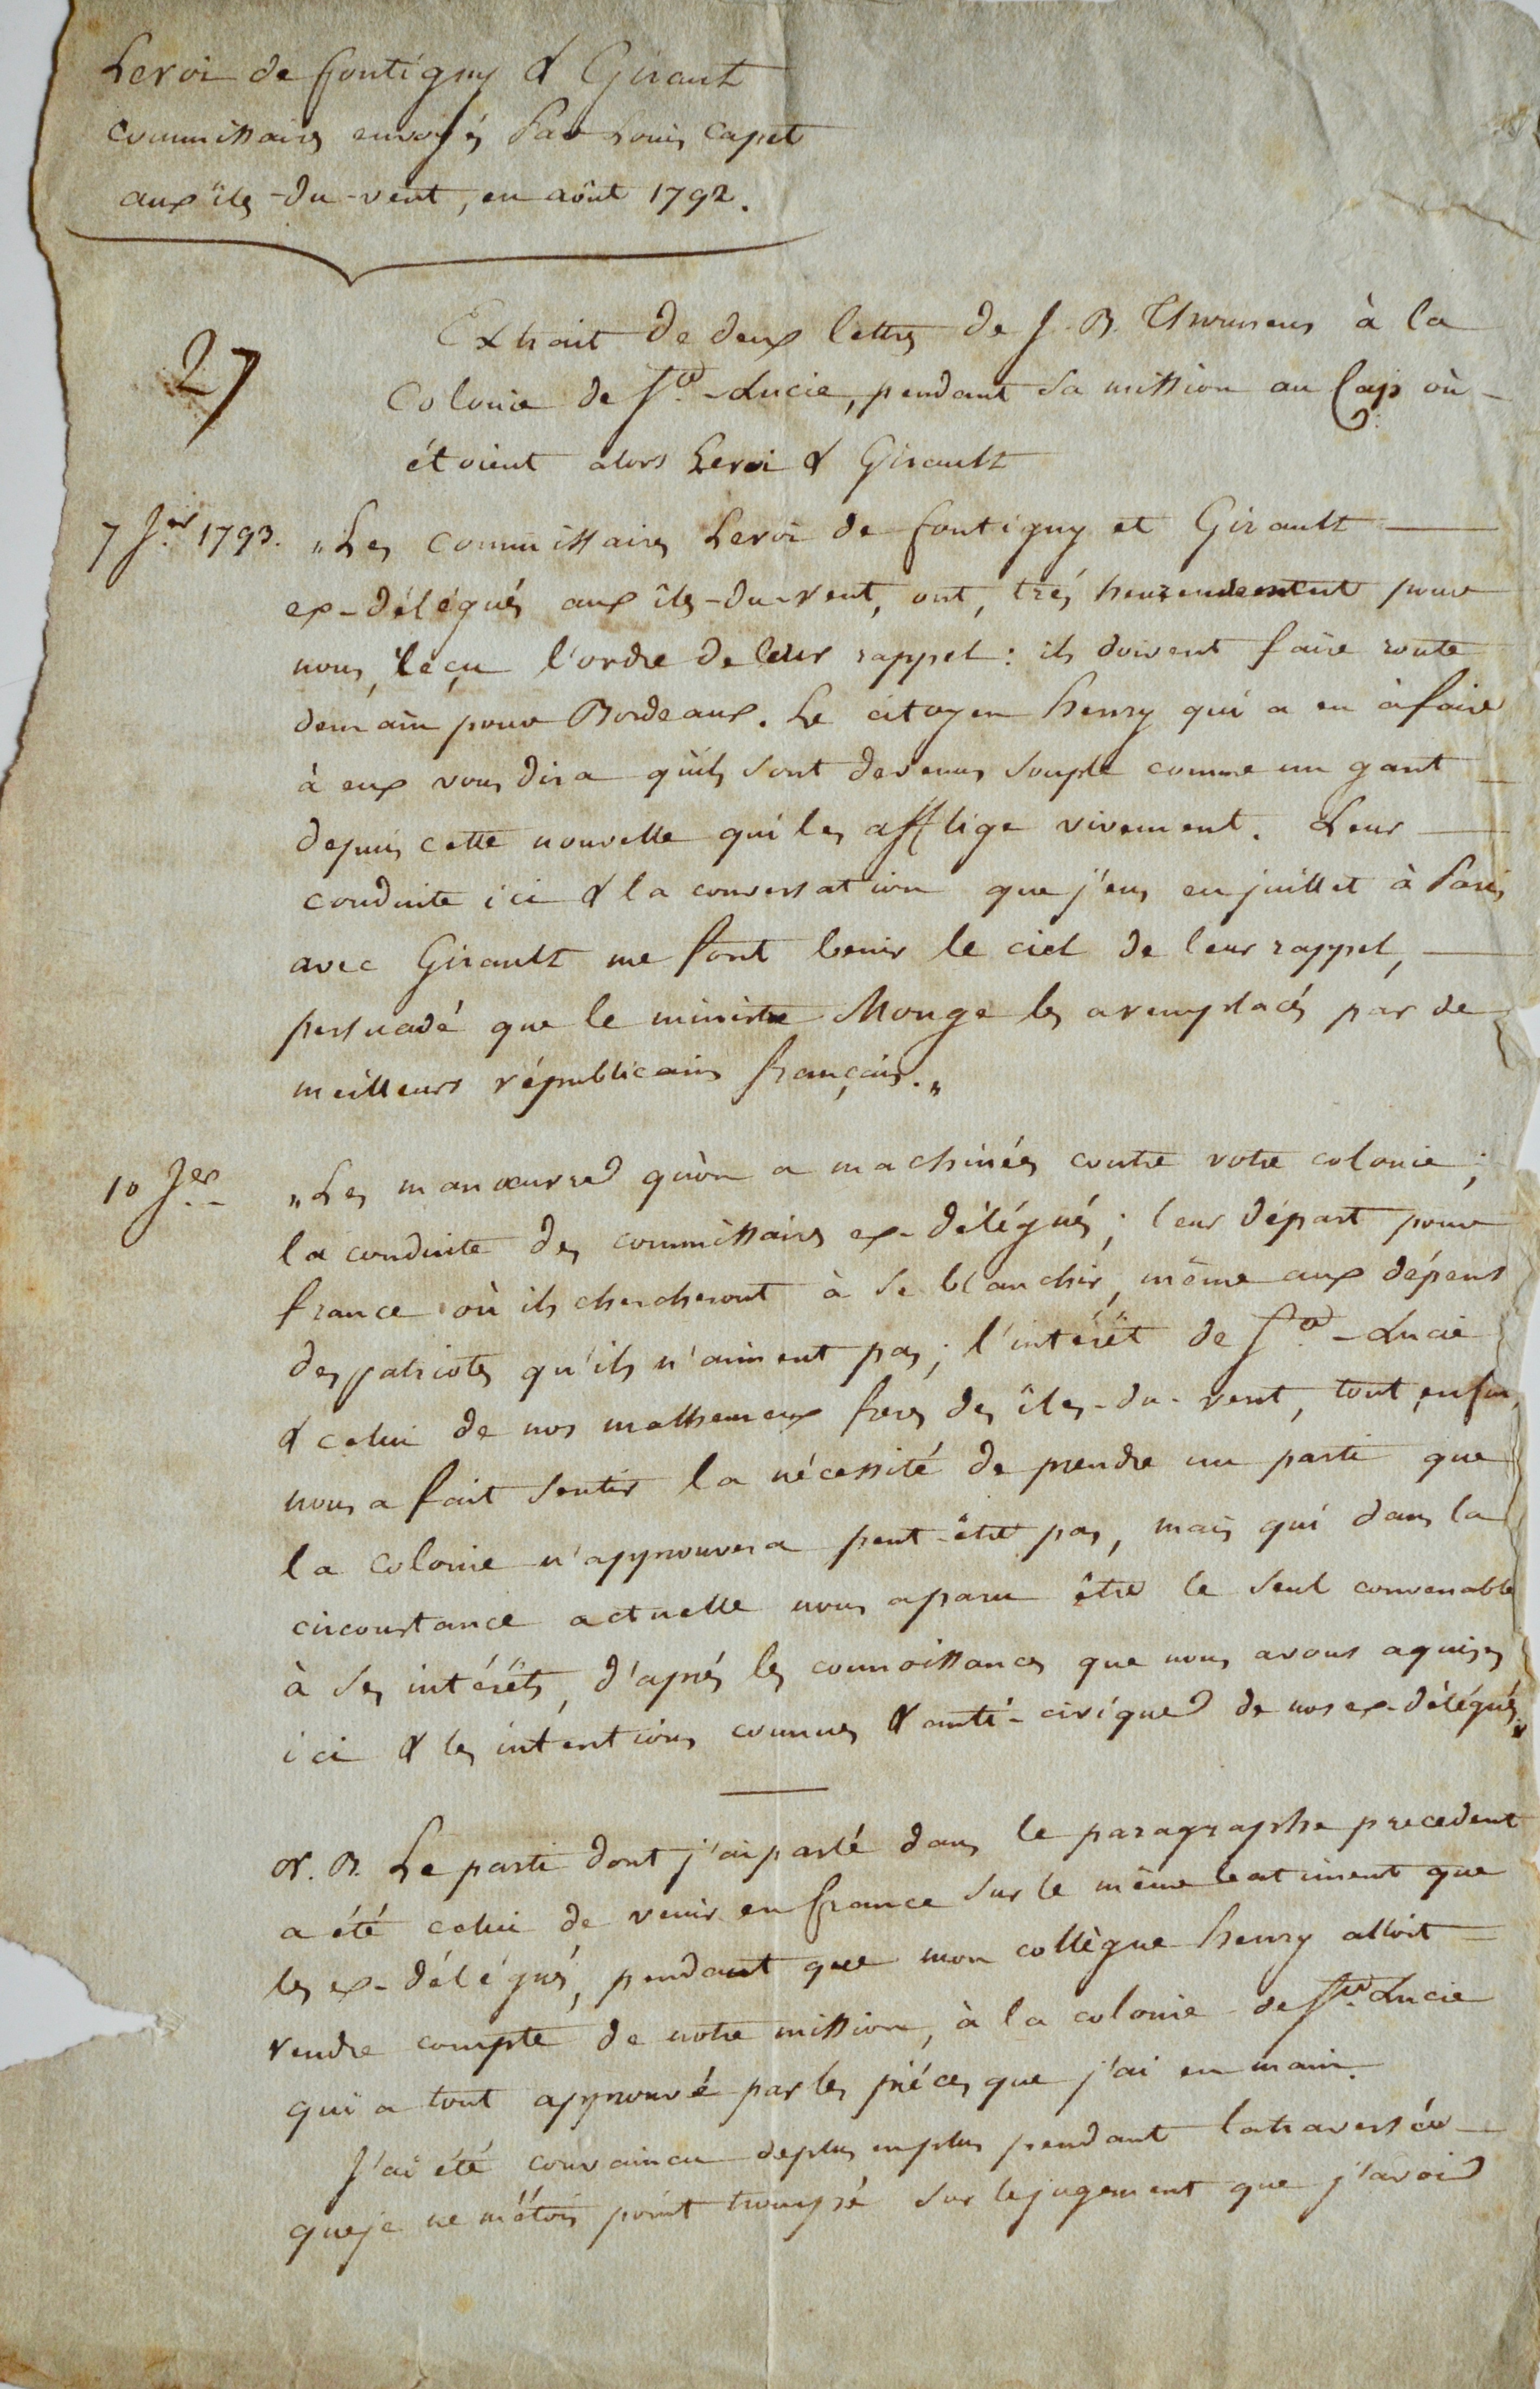 Leroi de fontigny & Girault
commissaires envoyés Par Louis Capet
aux îles-du-vent, en aôut 1792.
27
Extrait de deux lettres de J. B. Thounens à la
Colonie de Ste.-Lucie, pendant sa mission au Cap où
étoient alors Leroi & Girault
7 Jer. 1793. „Les commissaires Leroi de fontigny et Girault
ex-délégués aux îles-du-vent, ont, trés heureusement pour
nous, reçu l'ordre de leur rappel: ils doivent faire route
demain pour Bordeaux. Le citoyen henry qui a eu à faire
à eux vous dira qu'ils sont devenus souple comme un gant
depuis cette nouvelle qui les afflige vivement. Leur
conduite ici & la conversation que j'eus en juillet à Paris
avec Girault me font benir le ciel de leur rappel,
persuadé que le ministre Monge les a remplacés par de
meilleurs républicains français.„
10 Jer. „Les manœuvres qu'on a machinées contre votre colonie;
la conduite des commissaires ex-délégués; leur départ pour
france où ils chercheront à se blanchir, même aux dépens
des patriotes qu'ils n'aiment pas; l'intérêt de Ste.-Lucie
& celui de nos malheureux freres des îles-du-vent, tout enfin,
nous a fait sentir la nécessité de prendre un parti que
la colonie n'approuvera peut-être pas, mais qui dans la
circonstance actuelle nous a paru être le seul convenable
à ses intérêts, d'aprés les connoissances que nous avons aquises
ici & les intentions connues & anti-civiques de nos ex-délégués„
N. B. Le parti dont j'ai parlé dans le paragraphe precedent
a été celui de venir en france sur le même batiment que
les ex-délégués, pendant que mon collègue henry alloit
rendre compte de notre mission, à la colonie de Ste. Lucie
qui a tout approuvé par les piéces que j'ai en main.
J'ai été convaincu deplus enplus pendant la traversée
que je ne m'étois point trompé sur le jugement que j'avois